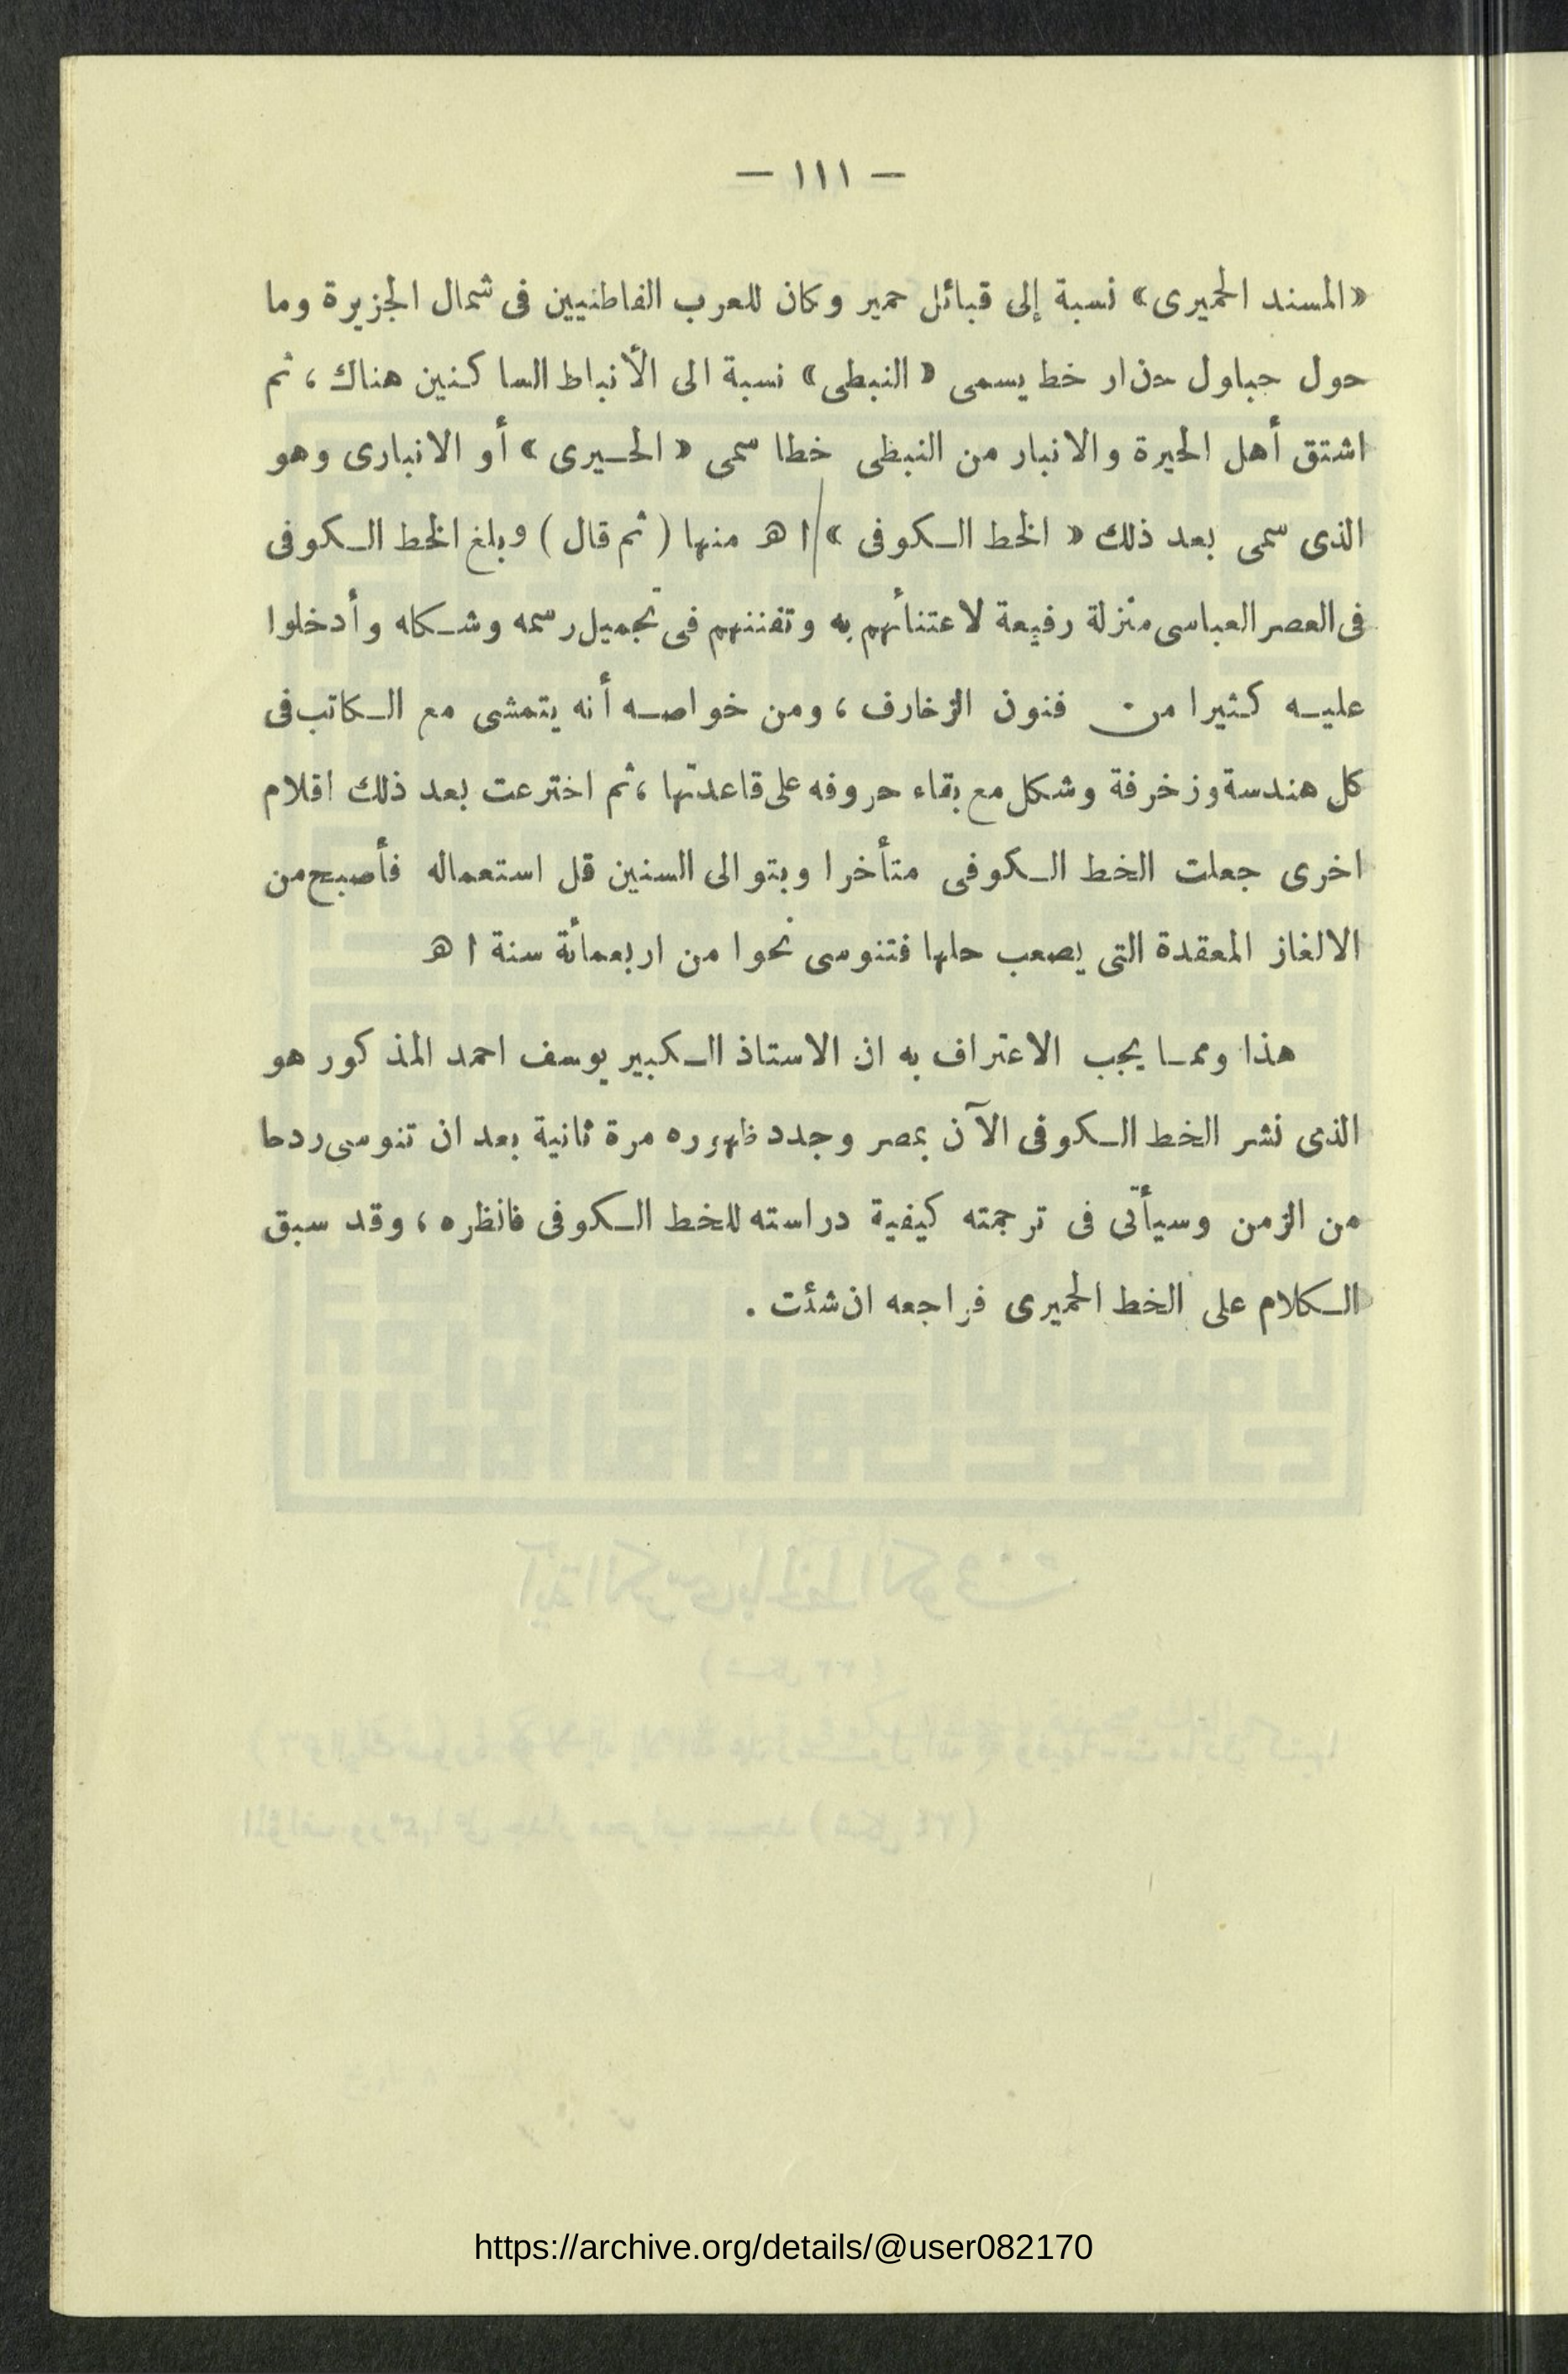 — ١١١ —
«المسند الحميرى» نسبة إلى قبائل حمير وكان للعرب القاطنيين فى شمال الجزيرة وما
حول جباول حذار خط يسمى «النبطى» نسبة الى الأنباط الساكنين هناك، ثم
اشتق أهل الحيرة والانبار من النبطى خطا سمى «الحيرى» أو الانبارى وهو
الذى سمى بعد ذلك «الخط الكوفى» ا هـ منها (ثم قال) وبلغ الخط الكوفى
فى العصر العباسى منزلة رفيعة لاعتنأهم به وتفننهم فى تجميل رسمه وشكله وأدخلوا
عليه كثيرا من فنون الزخارف، ومن خواصه أنه يتمشى مع الكاتب فى
كل هندسة وزخرفة وشكل مع بقاء حروفه على قاعدتها، ثم اخترعت بعد ذلك اقلام
اخرى جعلت الخط الكوفى متأخرا وبتوالى السنين قل استعماله فأصبح من
الالغاز المعقدة التى يصعب حلها فتنوسى نحوا من اربعمأة سنة ا هـ
هذا ومما يجب الاعتراف به ان الاستاذ الكبير يوسف احمد المذكور هو
الذى نشر الخط الكوفى الآن بمصر وجدد ظهوره مرة ثانية بعد ان تنوسى ردحا
من الزمن وسيأتى فى ترجمته كيفية دراسته للخط الكوفى فانظره، وقد سبق
الكلام على الخط الحميرى فراجعه ان شئت .
https://archive.org/details/@user082170